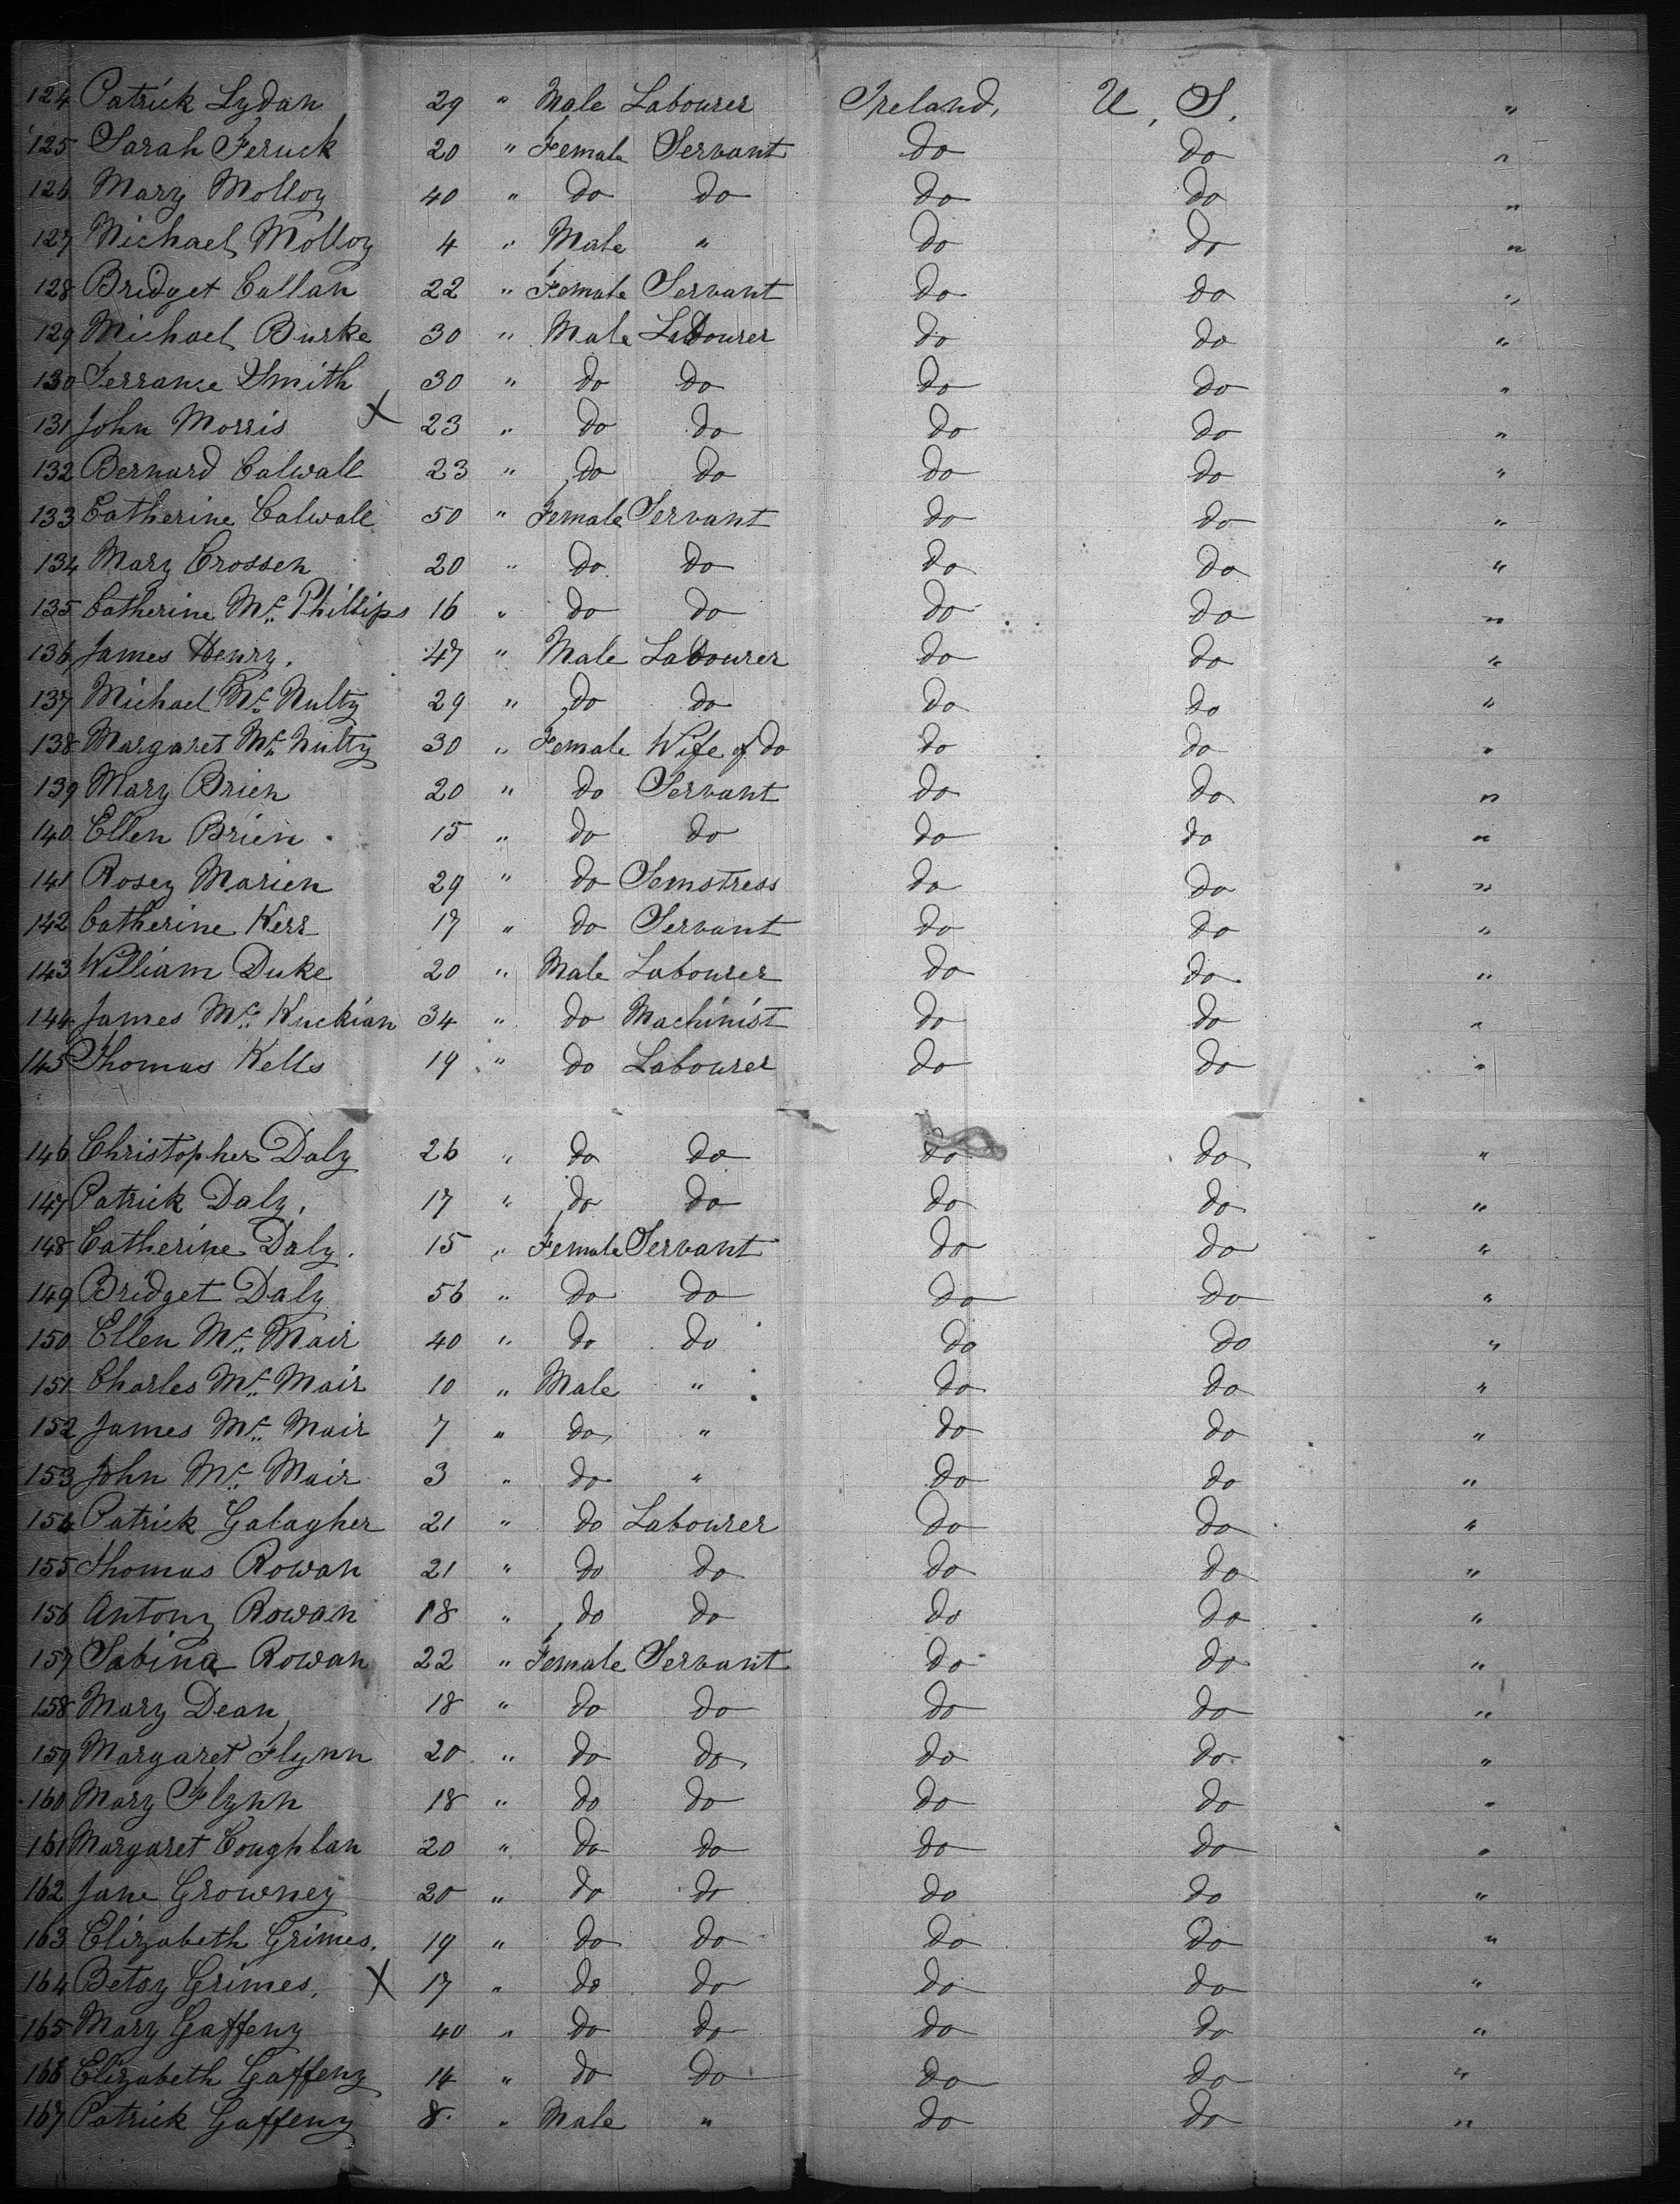 124 Patrick Lydan 29 " Male Labourer Ireland, U. S. "
125 Sarah Feruck 20 " Female Servant do do "
126 Mary Molloy 40 " do do do do "
127 Michael Molloy 4 " Male " do do "
128 Bridget Callan 22 " Female Servant do do "
129 Michael Burke 30 " Male Labourer do do "
130 Terrance Smith 30 " do do do do "
131 John Morris X 23 " do do do do "
132 Bernard Calwall 23 " do do do do "
133 Catherine Calwall 50 " Female Servant do do "
134 Mary Crossen 20 " do do do do "
135 Catherine Mc. Phillips 16 " do do do do "
136 James Henry. 47 " Male Labourer do do "
137 Michael Mc. Nulty 29 " do do do do "
138 Margaret Mc. Nulty 30 " Female Wife of do do do "
139 Mary Brien 20 " do Servant do do "
140 Ellen Brien 15 " do do do do "
141 Rosey Marien 29 " do Semstress do do "
142 Catherine Kerr 17 " do Servant do do "
143 William Duke 20 " Male Labourer do do "
144 James Mc. Kuckian 34 " do Machinist do do "
145 Thomas Kells 19 " do Labourer do do "
146 Christopher Daly 26 " do do do do "
147 Patrick Daly. 17 " do do do do "
148 Catherine Daly. 15 " Female Servant do do "
149 Bridget Daly 56 " do do do do "
150 Ellen Mc. Mair 40 " do do do do "
151 Charles Mc. Mair 10 " Male " do do "
152 James Mc. Mair 7 " do " do do "
153 John Mc. Mair 3 " do " do do "
154 Patrick Galagher 21 " do Labourer do do "
155 Thomas Rowan 21 " do do do do "
156 Antony Rowan 18 " do do do do "
157 Sabina Rowan 22 " Female Servant do do "
158 Mary Dean 18 " do do do do "
159 Margaret Flynn 20 " do do do do "
160 Mary Flynn 18 " do do do do "
161 Margaret Coughlan 20 " do do do do "
162 Jane Growney 20 " do do do do "
163 Elizabeth Grimes. 19 " do do do do "
164 Betsy Grimes. X 17 " do do do do "
165 Mary Gaffeny 40 " do do do do "
166 Elizabeth Gaffeny 14 " do do do do "
167 Patrick Gaffeny 8 " Male " do do "